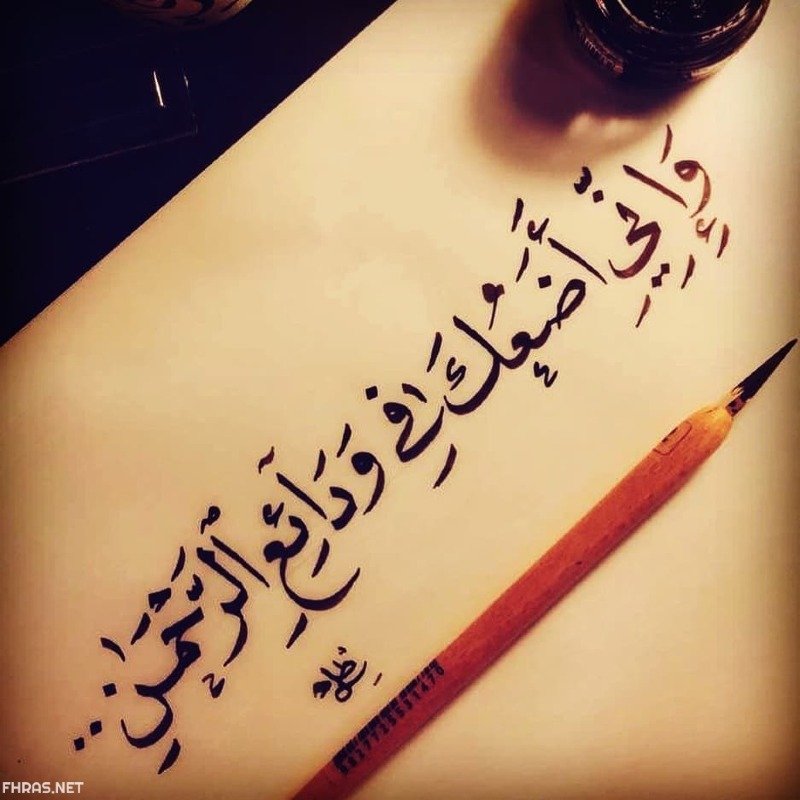 وَإِنِّي أَضَعُكَ فِي وَدَائِعِ ٱلرَّحْمَٰنِ..
FHRAS.NET